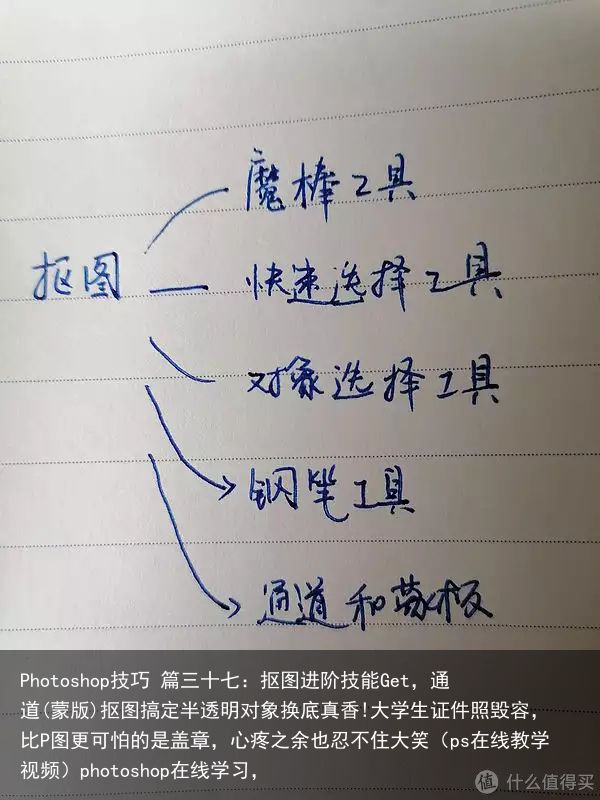 魔棒工具
抠图 快速选择工具
对象选择工具
钢笔工具
通道和蒙板
Photoshop技巧 篇三十七：抠图进阶技能Get，通
道(蒙版)抠图搞定半透明对象换底真香!大学生证件照毁容，
比P图更可怕的是盖章，心疼之余也忍不住大笑（ps在线教学
视频）photoshop在线学习，
值 什么值得买